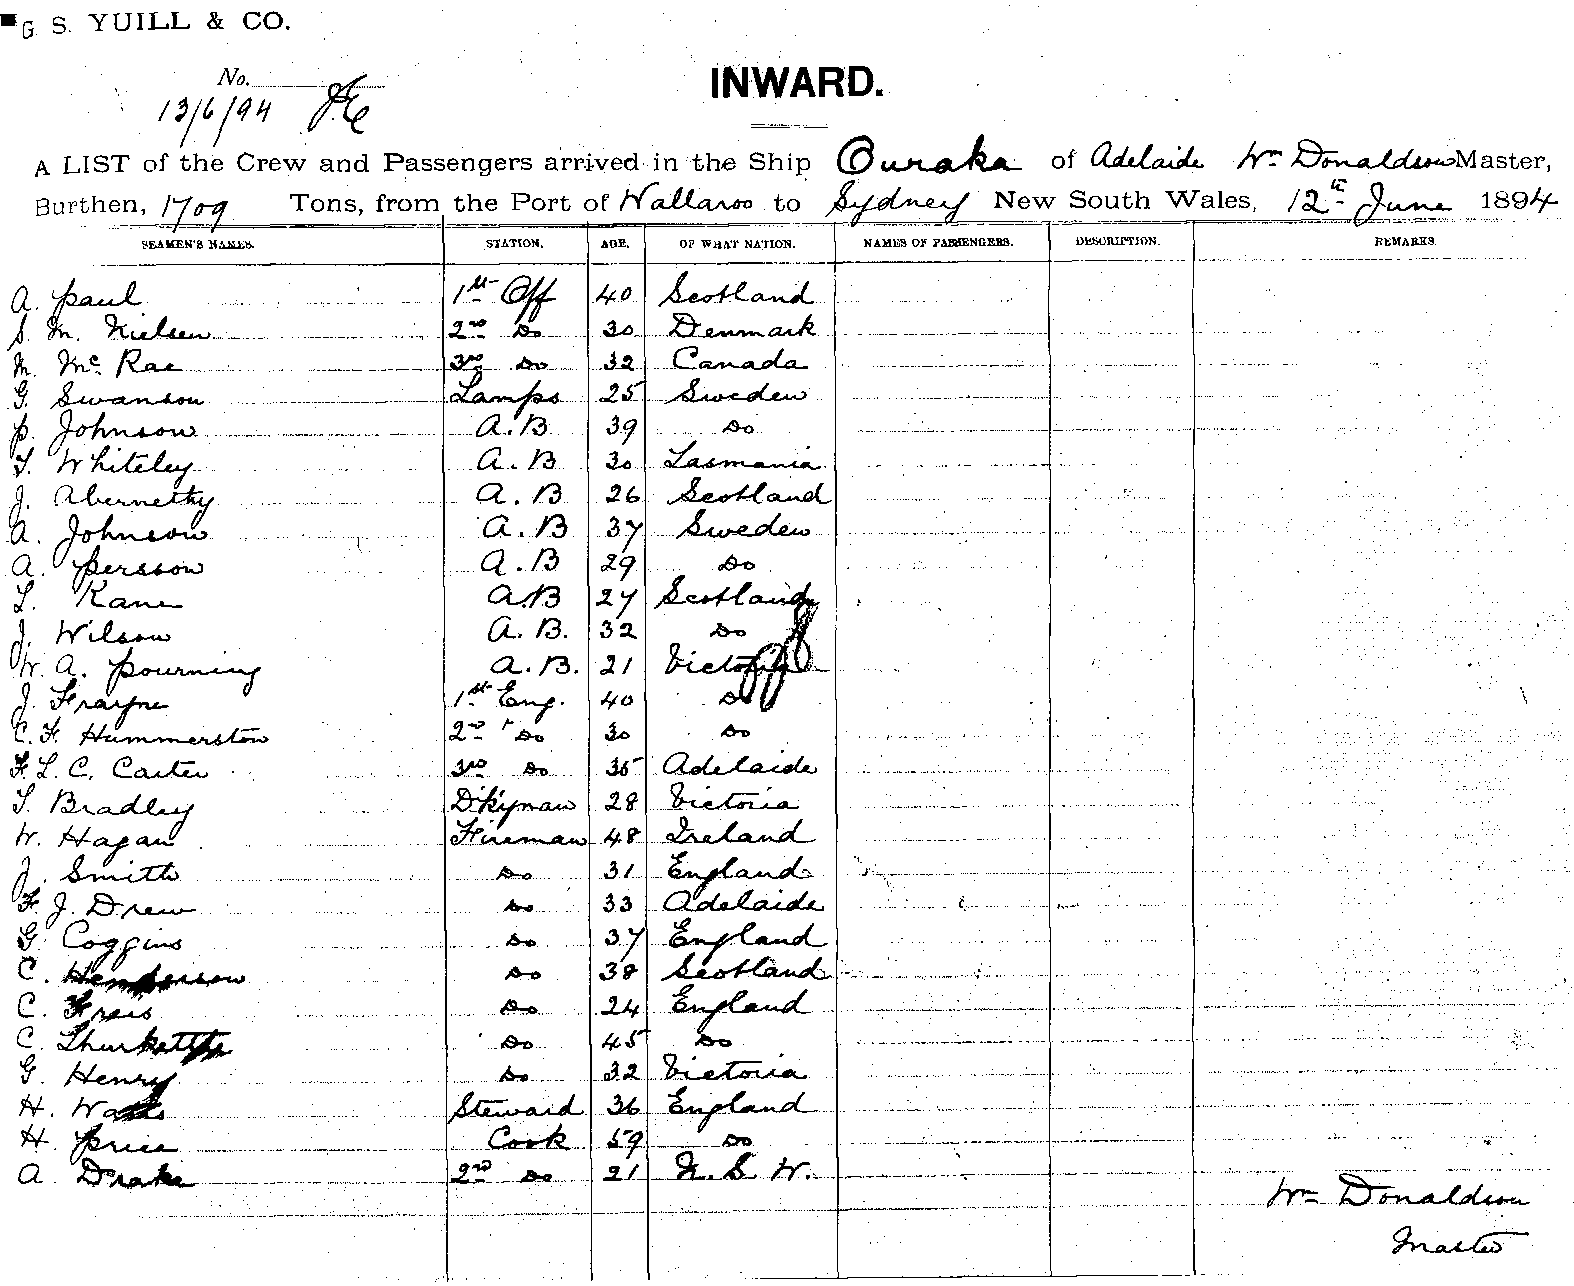 G. S. YUILL & CO.
No.
INWARD.
13/6/94
A LIST of the Crew and Passengers arrived in the Ship Ouraka of Adelaide Wm Donaldson Master,
Burthen, 1709 Tons, from the Port of Wallaroo to Sydney New South Wales, 12th June 1894
SEAMEN'S NAMES. STATION. AGE. OF WHAT NATION. NAMES OF PASSENGERS. DESCRIPTION. REMARKS.
A. Paul 1st Off 40 Scotland
S. M. Nielsen 2nd Do 30 Denmark
M. McRae 3rd Do 32 Canada
G. Swanson Lamps 25 Sweden
P. Johnson A.B 39 Do
T. Whiteley A.B 30 Tasmania
J. Abernethy A.B 26 Scotland
A. Johnson A.B 37 Sweden
A. Persson A.B 29 Do
L. Kane A.B 27 Scotland
J. Wilson A.B. 32 Do
W. A. Pourning A.B. 21 Victoria
J. Frayne 1st Eng. 40 Do
C. F. Hummerston 2nd Do 30 Do
F. L. C. Carter 3rd Do 35 Adelaide
T. Bradley D'kyman 28 Victoria
W. Hagan Fireman 48 Ireland
J. Smith Do 31 England
F. J. Drew Do 33 Adelaide
G. Coggins Do 37 England
C. Henderson Do 38 Scotland
C. Freis Do 24 England
C. Do 45 Do
G. Henry Do 32 Victoria
H. Steward 36 England
H. Price Cook 59 Do
A Drake 2nd Do 21 N. S. W.
Wm Donaldson
Master